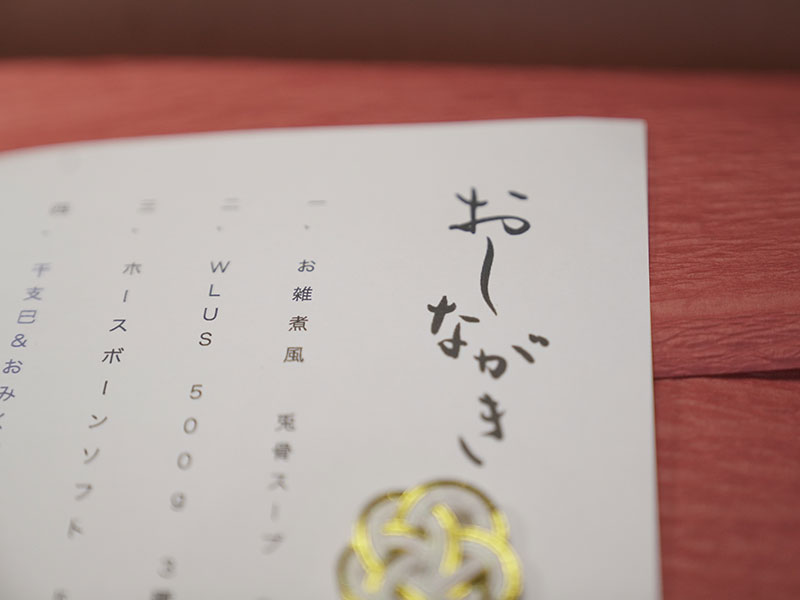 おしながき
一、お雑煮風 兎骨スープ
二、WLUS 500g 3
三、ホースボーンソフト
四、干支巳&おみく